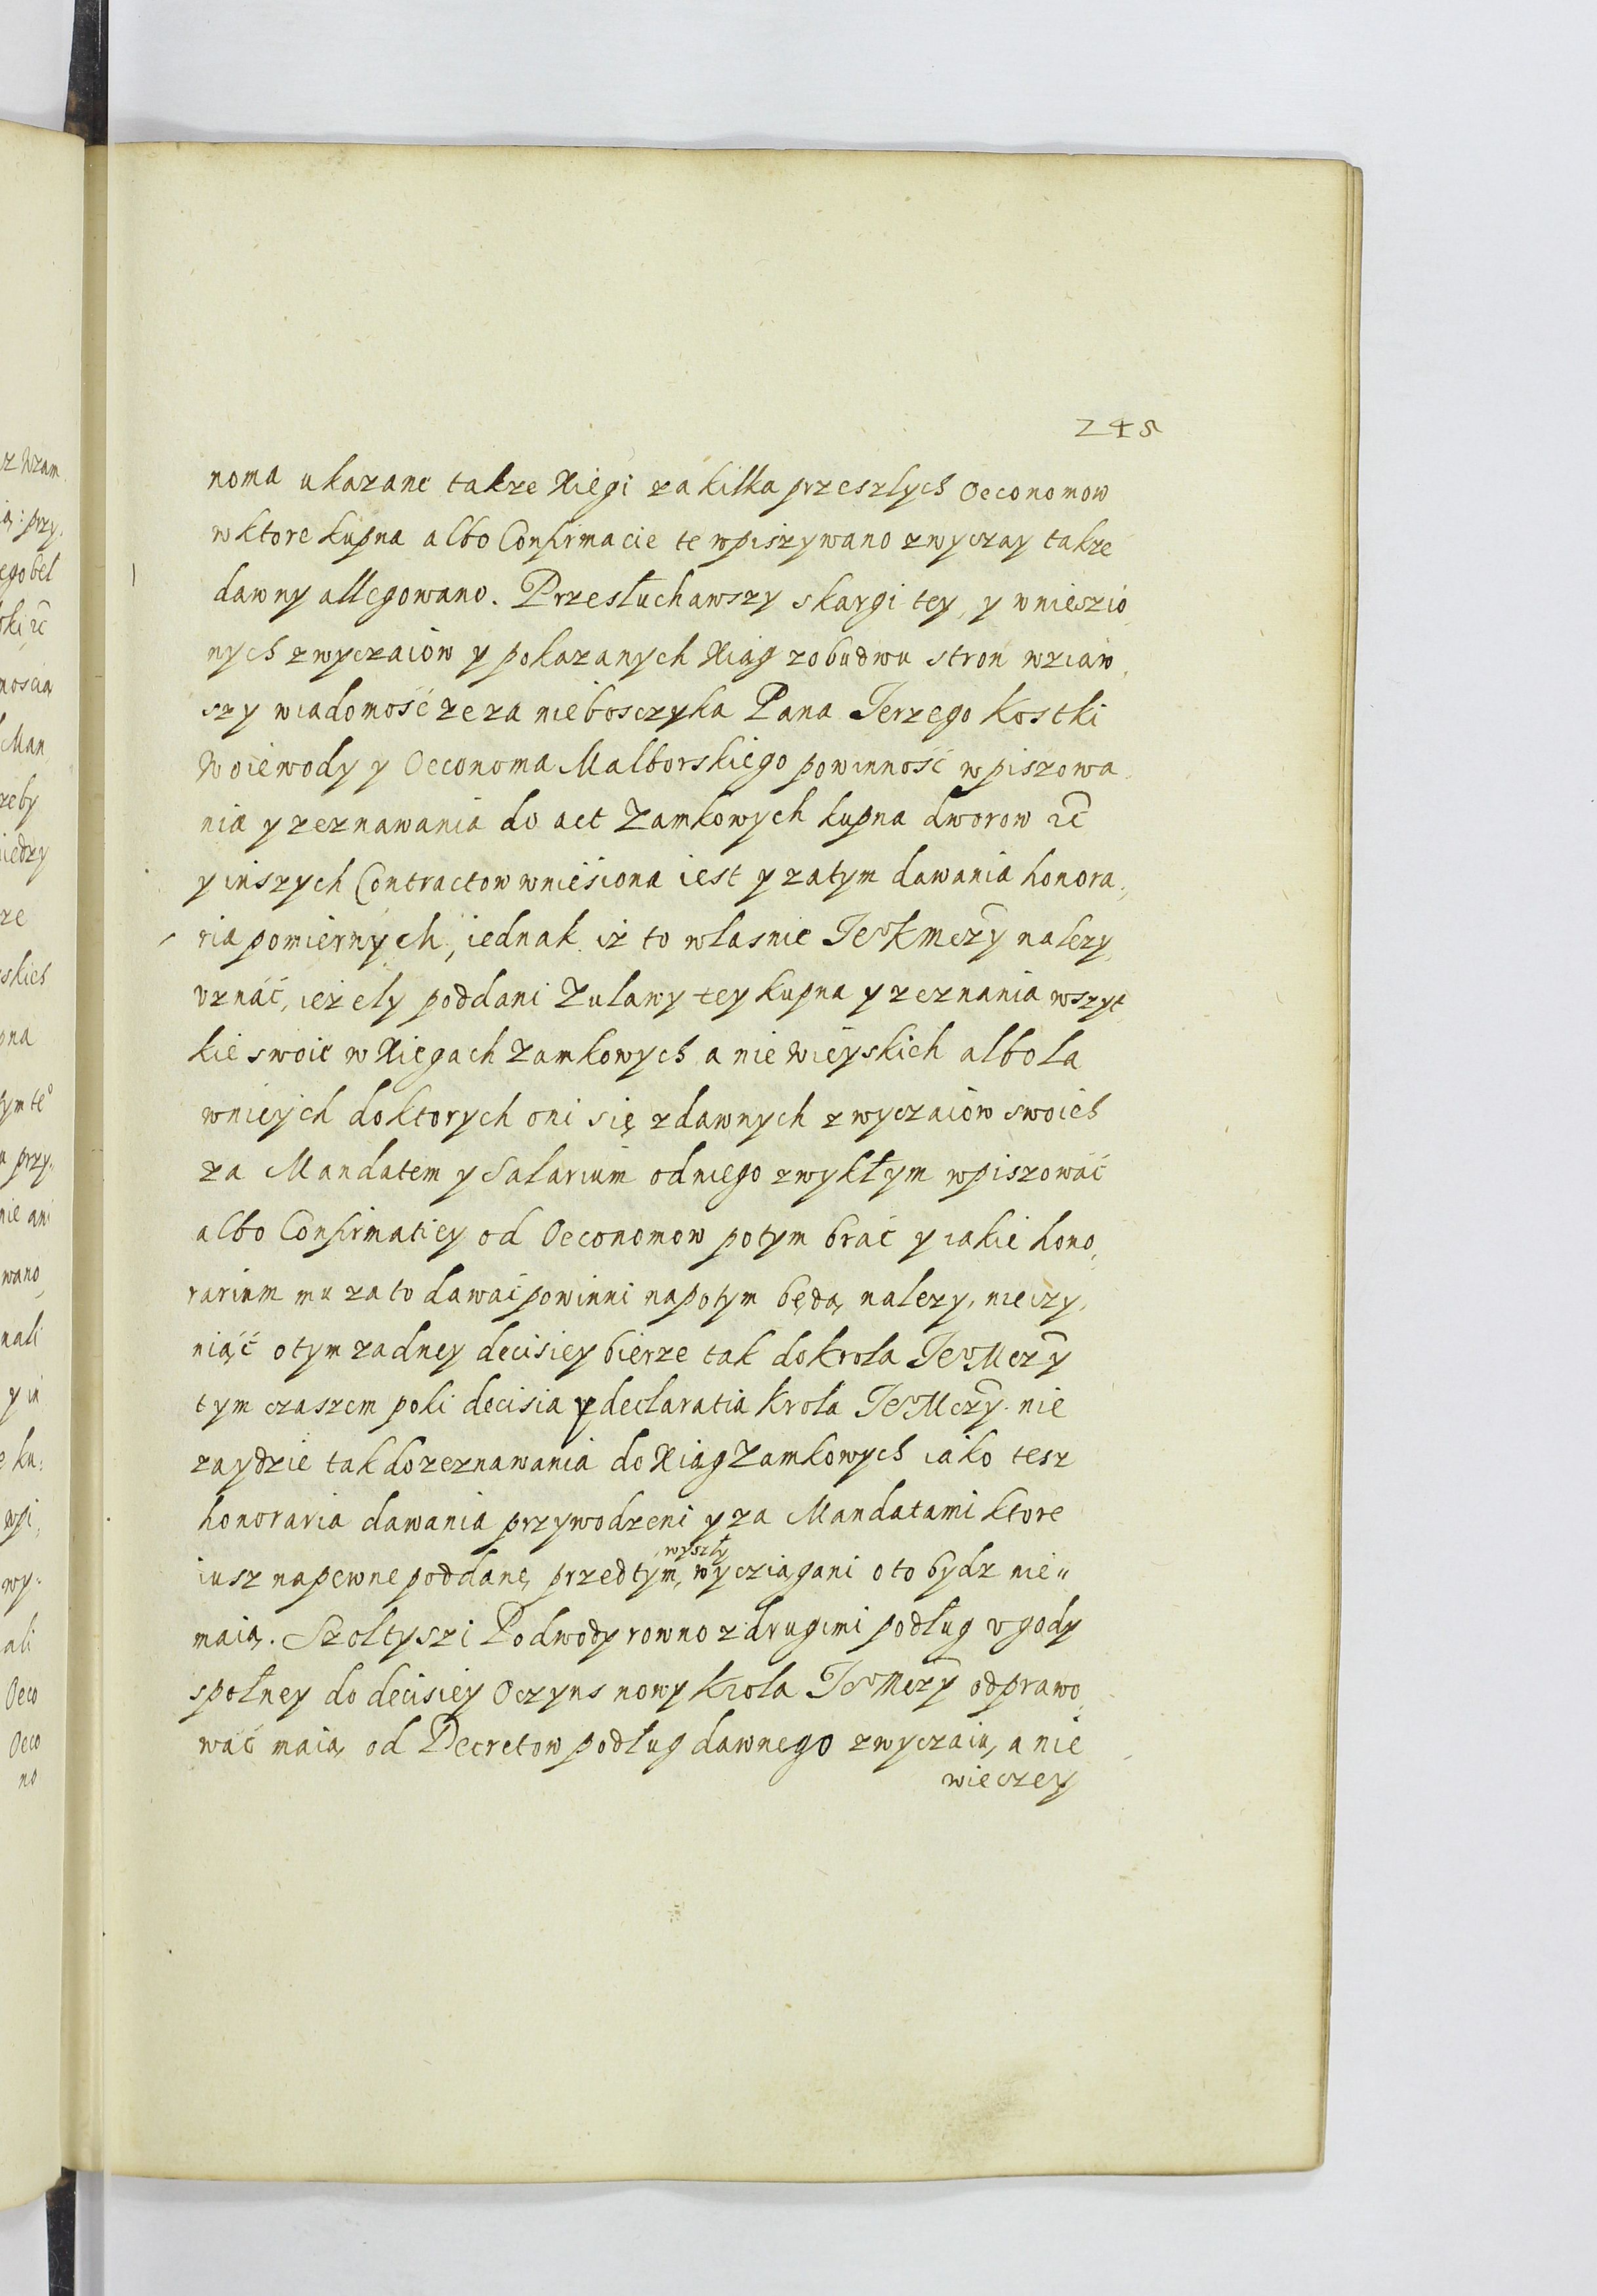 245
noma ukazane takze Xiegi za kilka przeszlych Oeconomow
w ktore kupna albo Confirmacie te wpiszywano zwyczay takze
dawny allegowano. Przesłuchawszy skargi tey, y wnieszio,
nych zwyczaiow y pokazanych Xiąg zobudwu stron wziaw,
szy wiadomość ze za nieboszczyka Pana Jerzego Kostki
Woiewody y Oeconoma Malborskiego powinność wpiszowa,
nia y zeznawania do act Zamkowych kupna dworow etc
y inszych Contractow wniesiona iest y zatym dawania honora,
ria pomiernych, iednak iz to wlasnie Jeo K Mczy nalezy
uznać, iezely poddani Zulawy tey kupna y zeznania wszyt
kie swoie w Xiegach Zamkowych a nie wieyskich albo la
wniczych do ktorych oni się z dawnych zwyczaiow swoich
za Mandatem y Salarium od niego zwykłym wpiszować
albo Confirmatiey od Oeconomow potym brać y iakie hono,
rarium mu za to dawać powinni napotym będą nalezy, nieczy,
niąć o tym zadney decisiey bierze tak do Krola Jeo Mczy
tym czaszem poki decisia y declaratia Krola Jeo Mczy nie
zaydzie tak do zeznawania do Xiąg Zamkowych iako tesz
honoraria dawania przywodzeni y za Mandatami ktore
iusz na pewne poddane przedtym, wyszły wycziagani o to bydz nie„
maią. Szoltyszi Podwody rowno z drugimi podług ugody
społney do decisiey Oczynsnowy Krola Jeo Mczy odprawo,
wać maią, od Decretow podług dawnego zwyczaiu, a nie
wieczey